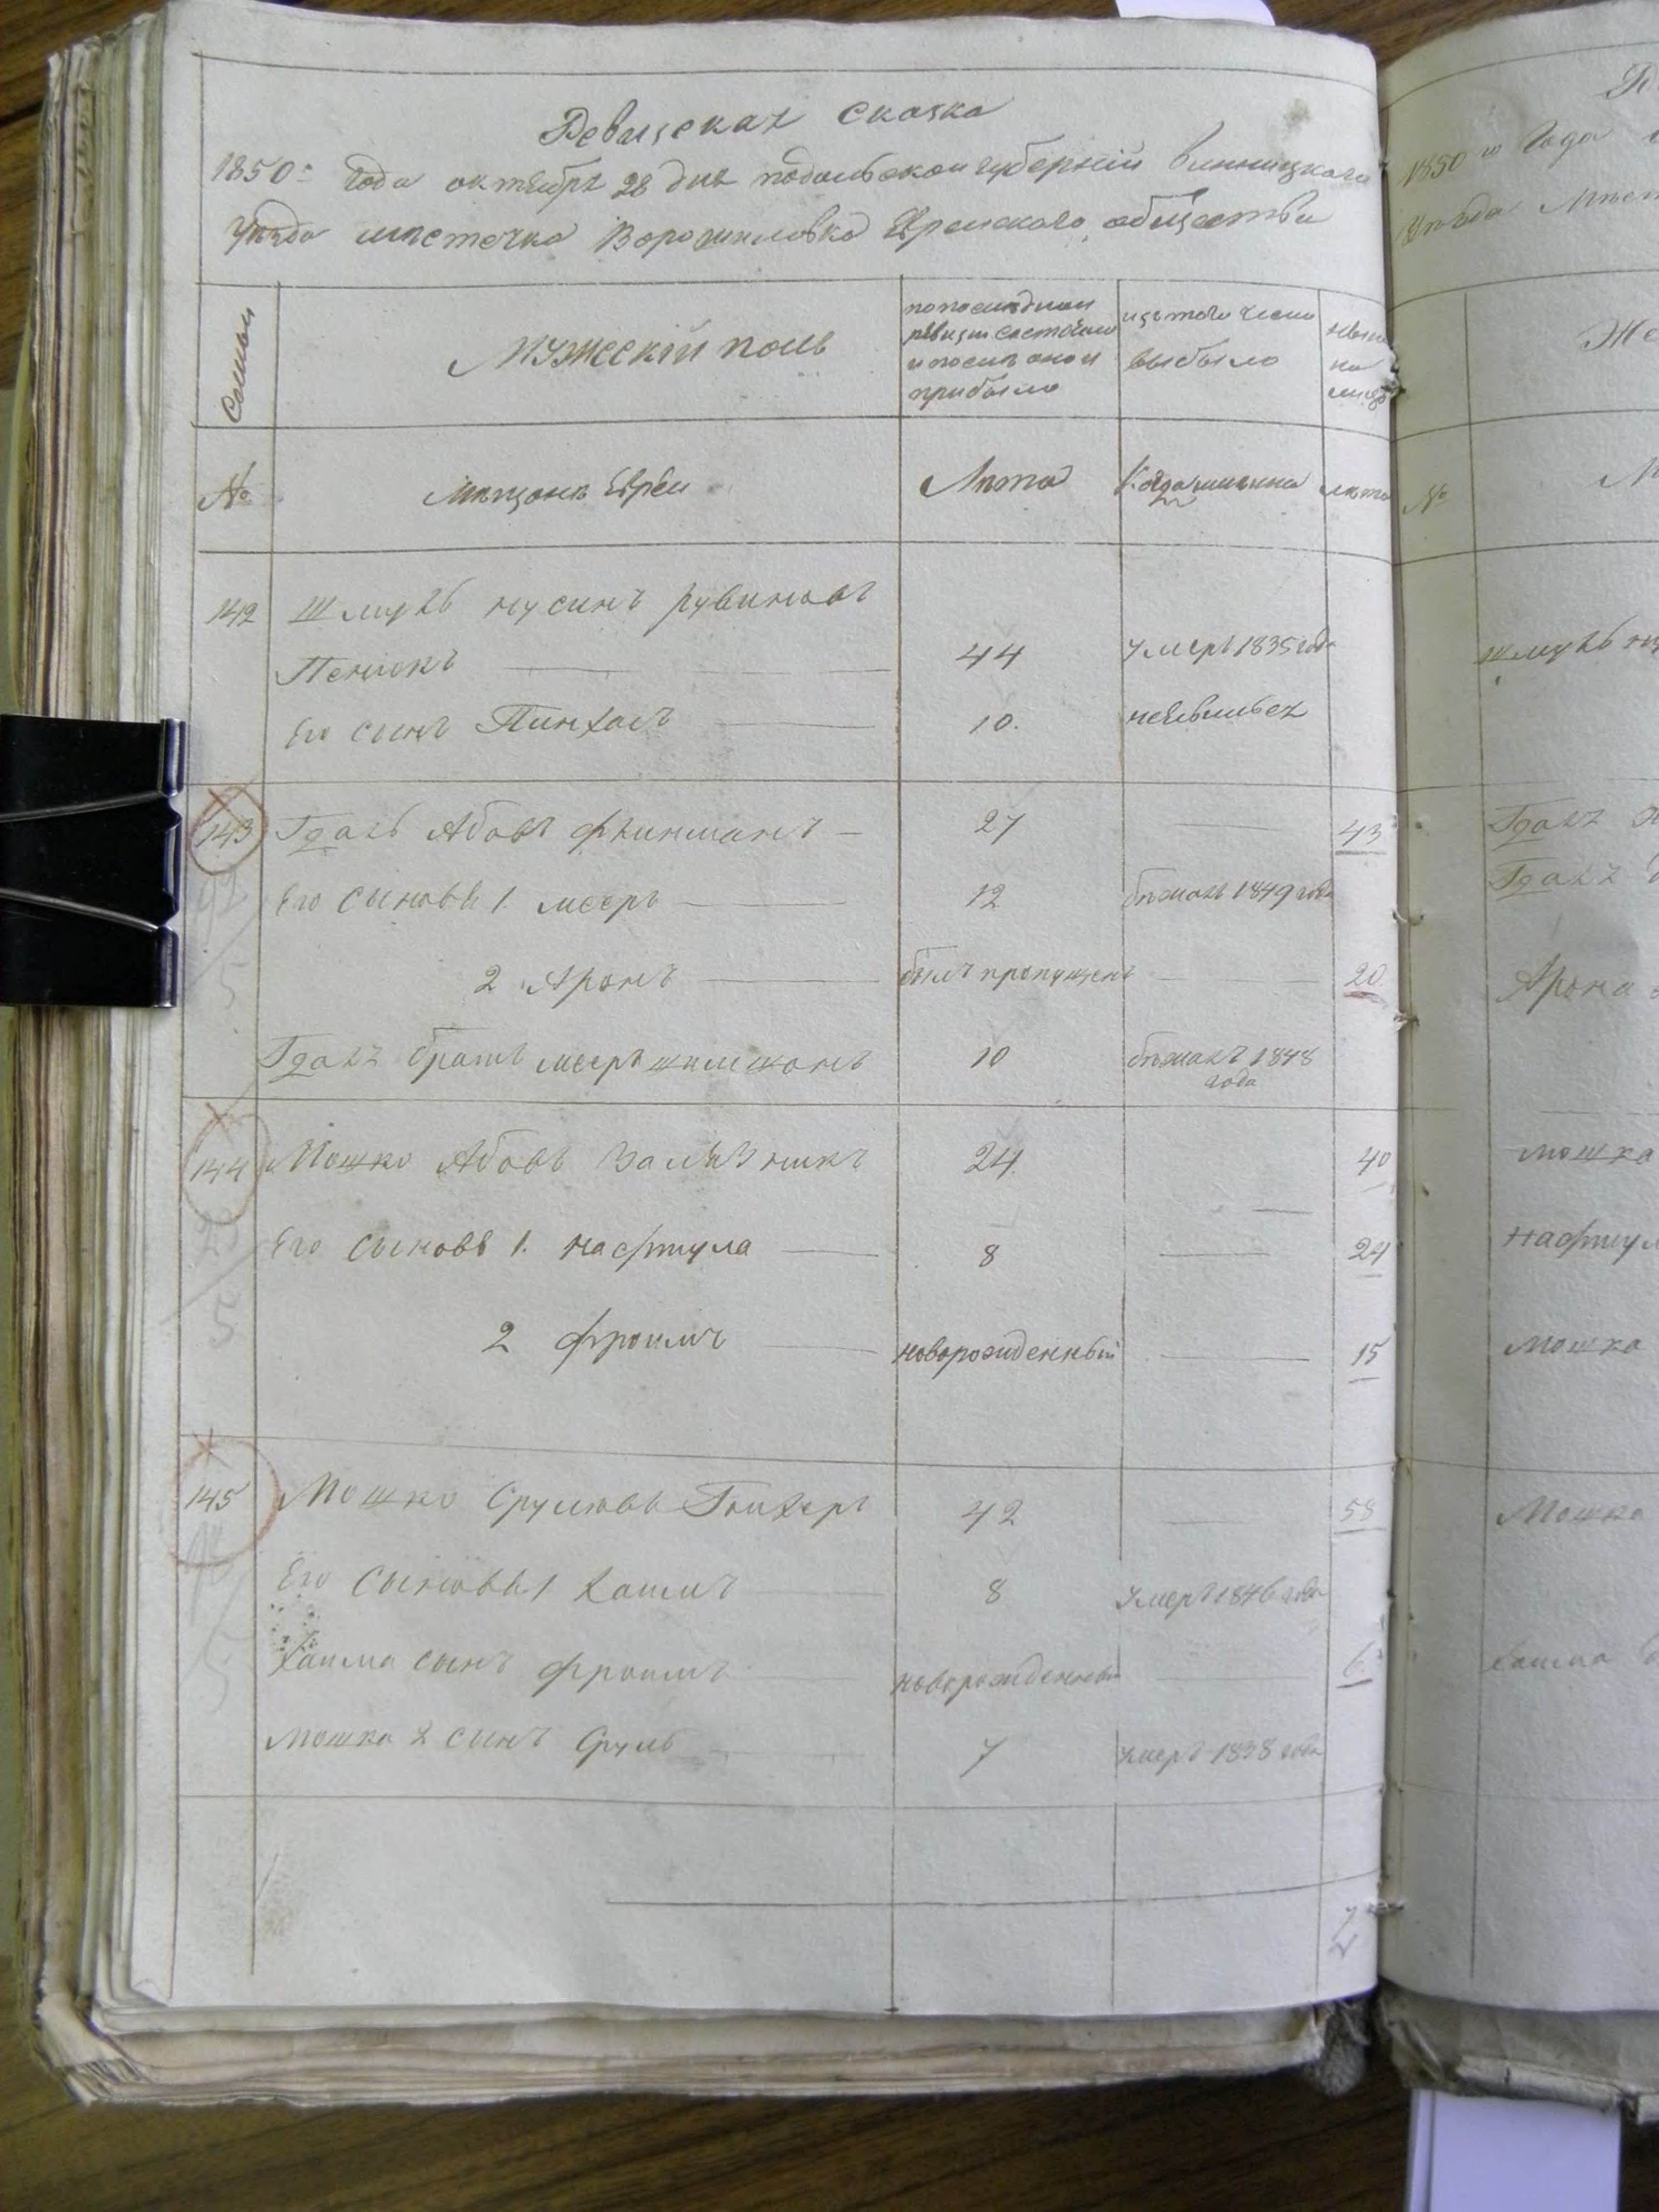 Ревизская сказка
1850 года октября 28 дня подольской губерніи винницкаго
уезда местечка Ворошиловка Еврейского общества
Семьи
Мужескій полъ
по последней
ревизіи состояло
и после оной
прибыло
изъ того числа
выбыло
ныне
на
лицо
№
Мещане Евреи
Лета
Когда именно
лета
142 Шмуль нусинъ рувиновъ
44 умеръ 1835 года
Его сынъ Пинхасъ 10. неявился
143 Гдаль Абовъ 27 43
Его сыновья 1. мееръ 12 бежалъ 1849 года
2 Аронъ былъ пропущенъ 20
Гдаля братъ мееръ шимшонъ 10 бежалъ 1848
года
144 Мошко Абовъ Зализникъ 24. 40
Его сыновья 1. нафтула 8 24
2 фроимъ новорожденный 15
145 Мошко Срулевъ 42 58
Его сыновья 1 хаимъ 8 умеръ 1846 года
хаима сынъ фроимъ новорожденный 6
мошка 2 сынъ Сруль 7 умеръ 1838 года
1850 года
уезда
№
Шмуль
Гдаля
Гдаля
Арона
мошка
нафтул
мошка
Мошка
хаима